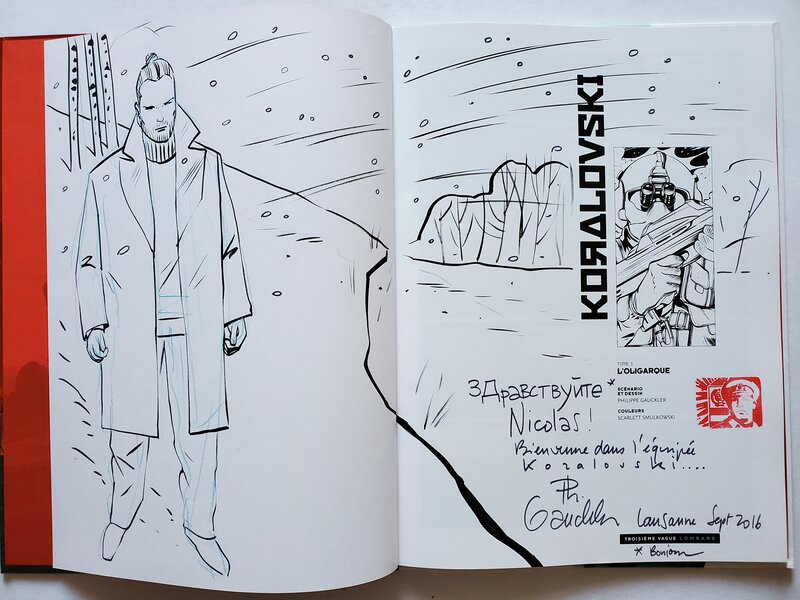 KORALOVSKI
TOME 1
L'OLIGARQUE
SCÉNARIO
ET DESSIN
PHILIPPE GAUCKLER
COULEURS
SCARLETT SMULKOWSKI
здравствуйте*
Nicolas!
Bienvenue dans l'équipée
Koralovski....
Ph.
Gauckler Lausanne Sept 2016
TROISIÈME VAGUE LOMBARD
* Bonjour